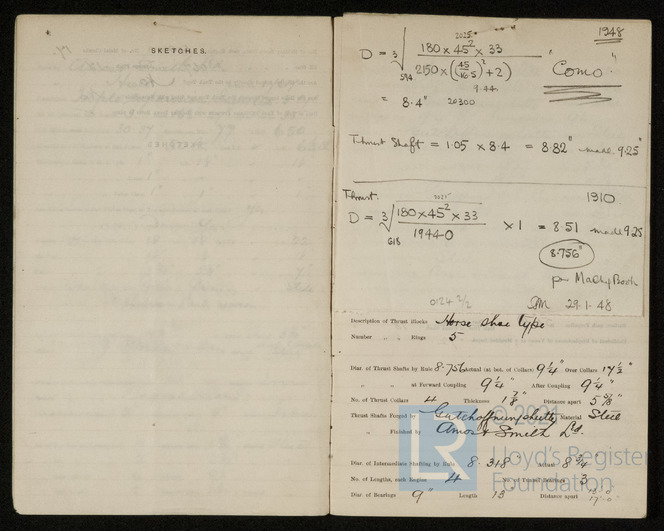 SKETCHES.
1948
2025
D = 3√ 180 × 45² × 33
2150 × ((45/16.5)² + 2)
594
9.44
"Como"
= 8.4" 20300
Thrust Shaft = 1.05 × 8.4 = 8.82" made 9.25"
Thrust. 1910
2025
D = 3√ 180 × 45² × 33 × 1 = 8.51 made 9.25
1944.0
618
8.756"
per Mach'y Book
29.1.48
Description of Thrust Blocks Horse shoe type
Number " " Rings 5
Diar. of Thrust Shafts by Rule 8.756 Actual (at bot. of Collars) 9¼" Over Collars 17½"
" " at Forward Coupling 9¼" After Coupling 9¼"
No. of Thrust Collars 4 Thickness 1⅞" Distance apart 5⅝"
Thrust Shafts Forged by Gutehoffnungshutte Material Steel
" Finished by Amos & Smith Ld.
Diar. of Intermediate Shafting by Rule 8.318" Actual 8¾"
No. of Lengths, each Engine 4 No. of Tunnel Bearings 3
Diar. of Bearings 9" Length 13" Distance apart
© 2021
LR
Lloyd's Register
Foundation